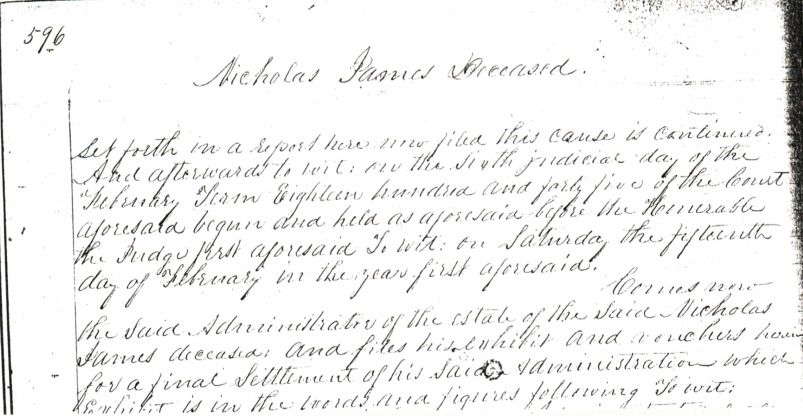 596
Nicholas James Deceased.
Set forth in a report here now filed this cause is continued.
And afterwards to wit: on the Sixth judicial day of the
February Term Eighteen hundred and forty five of the Court
aforesaid begun and held as aforesaid before the Honerable
the Judge first aforesaid To wit: on Saturday the fifteenth
day of February in the year first aforesaid.
Comes now
the Said Administrator of the estate of the Said Nicholas
James deceased: and files his exhibit and vouchers
for a final Settlement of his Said Administration which
Exhibit is in the words and figures following To wit: